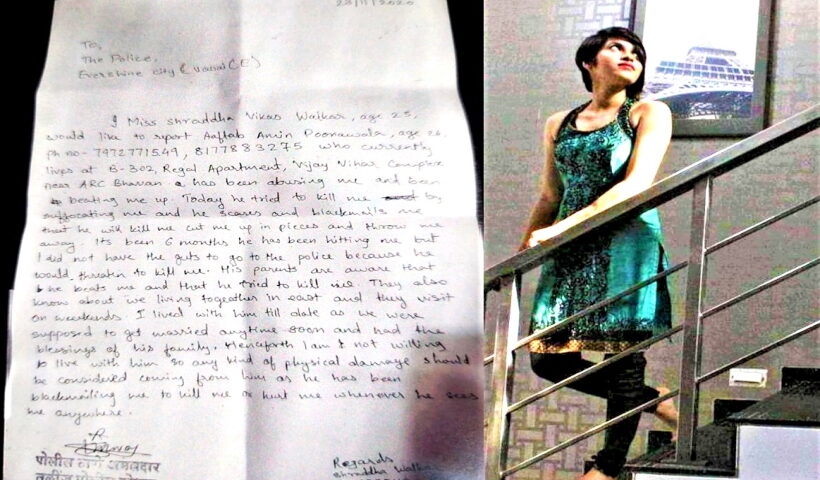 23/11/2020
To,
The Police,
Evershine city (Vasai (E)
I Miss Shraddha Vikas Walkar, age 25,
would like to report Aaftab Amin Poonawala, age 26
ph no- 7972771549, 8177883275 who currently
lives at B-302, Regal Apartment, Vijay Vihar Complex
near ARC Bhavan has been abusing me and been
beating me up. Today he tried to kill me by
suffocating me and he scares and blackmails me
that he will kill me cut me up in pieces and throw me
away. Its been 6 months he has been hitting me but
I did not have the guts to go to the police because he
would threaten to kill me. His parents are aware that
he beats me and that he tried to kill me. They also
know about we living together in east and they visit
on weekends. I lived with him till date as we were
supposed to get married anytime soon and had the
blessings of his family. Henceforth I am not willing
to live with him so any kind of physical damage should
be considered coming from him as he has been
blackmailing me to kill me or hurt me whenever he sees
me anywhere.
पोलीस ठाणे अंमलदार
Regards
Shraddha Walkar